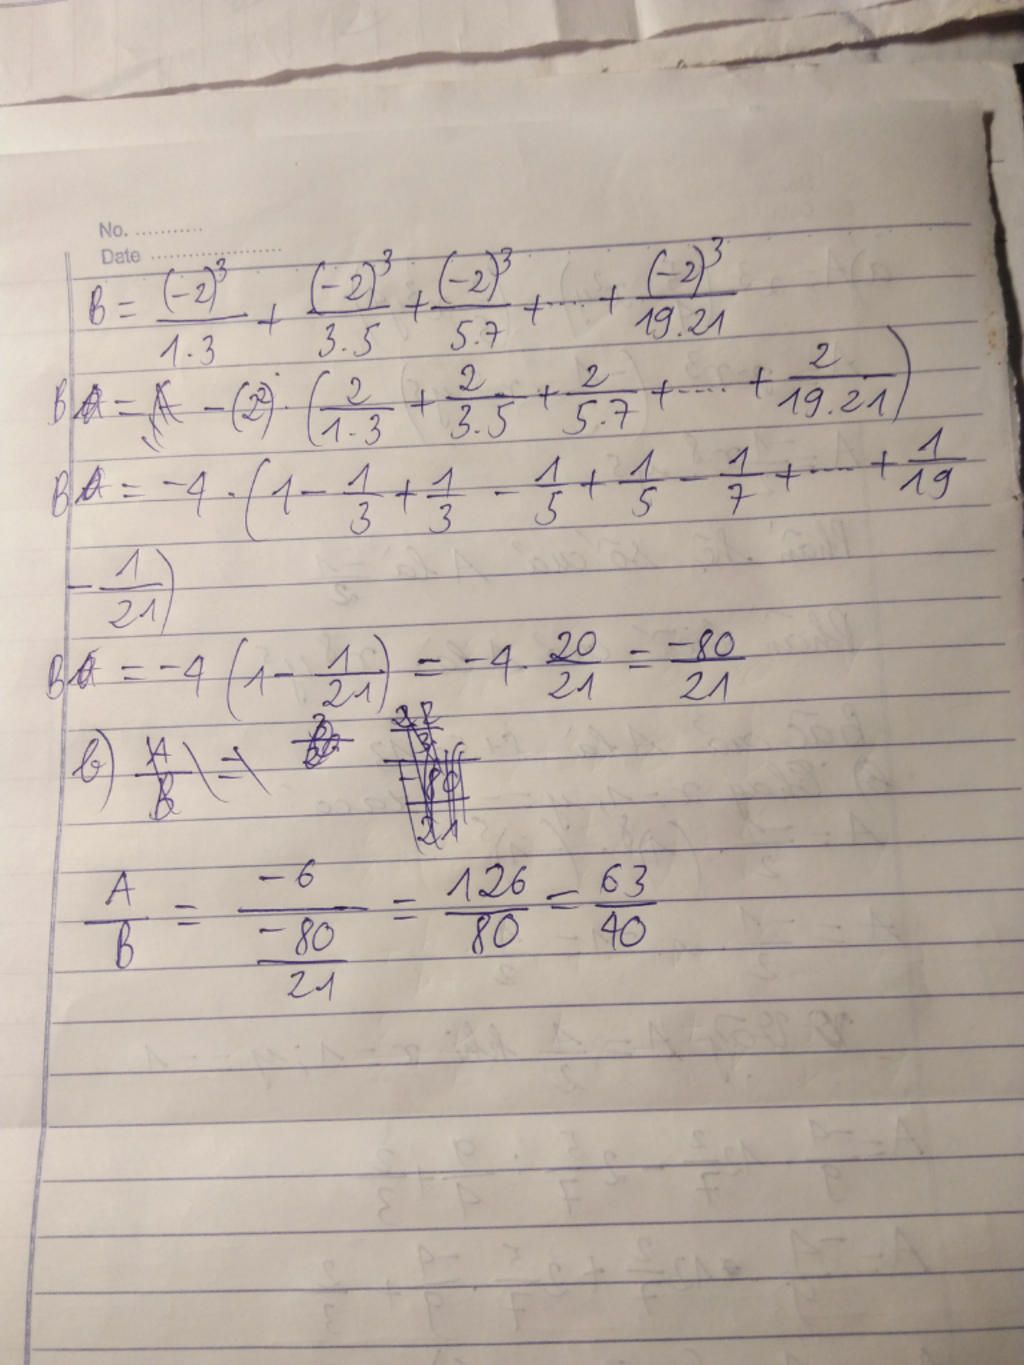 No. ...........
Date ......................
B = (-2)³/1.3 + (-2)³/3.5 + (-2)³/5.7 + .... + (-2)³/19.21
B = -(2²) . (2/1.3 + 2/3.5 + 2/5.7 + .... + 2/19.21)
B = -4 . (1 - 1/3 + 1/3 - 1/5 + 1/5 - 1/7 + .... + 1/19
- 1/21)
B = -4 (1 - 1/21) = -4 . 20/21 = -80/21
b) A/B =
A/B = -6/(-80/21) = 126/80 = 63/40